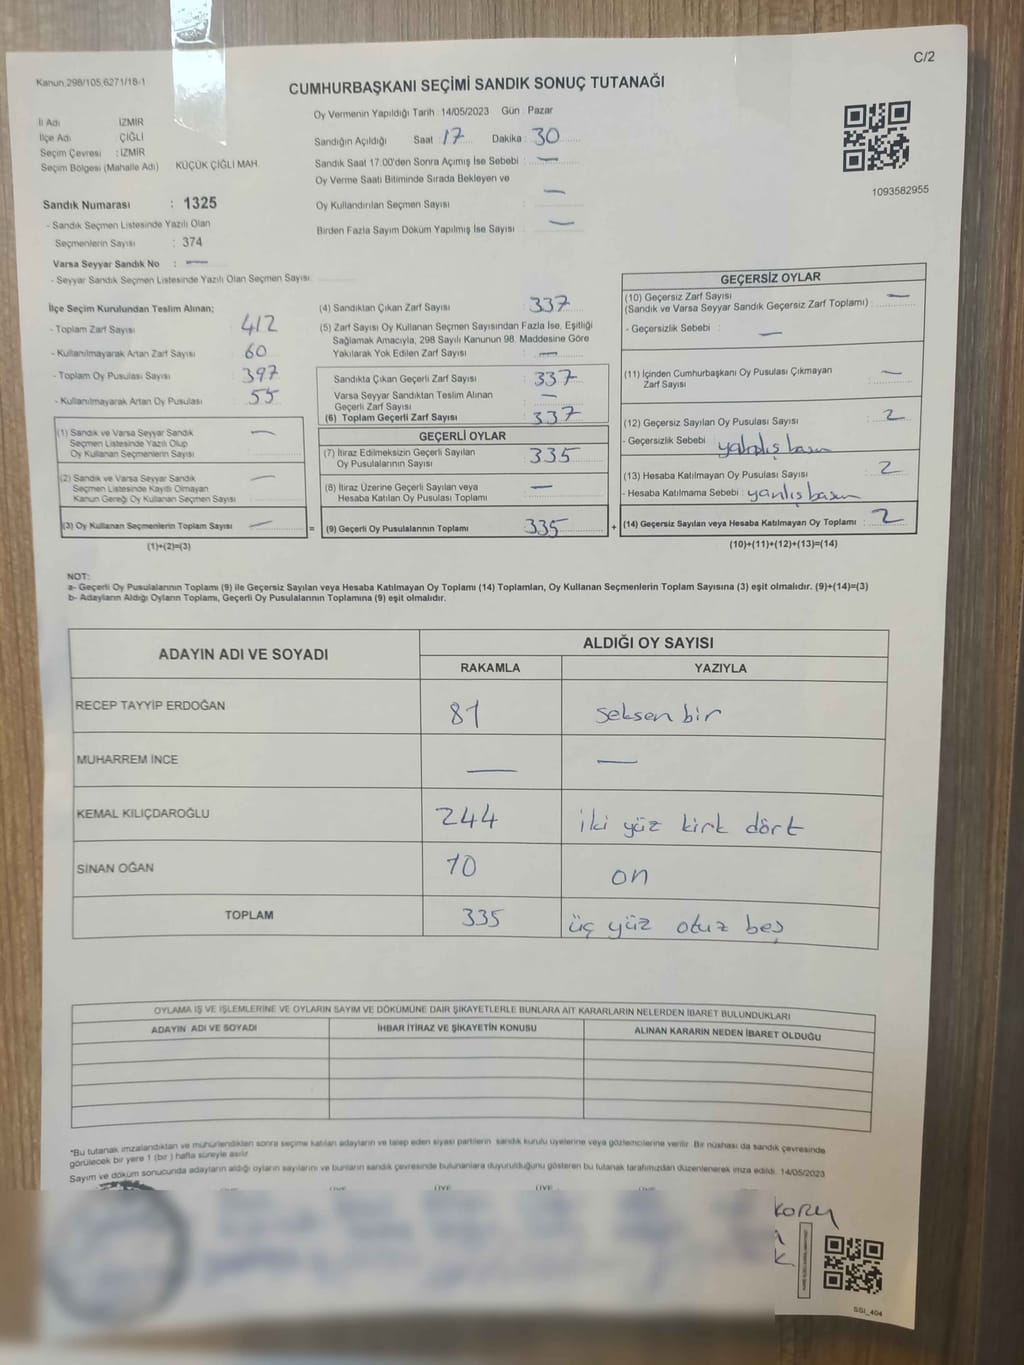 C/2
Kanun.298/105.6271/18-1
CUMHURBAŞKANI SEÇİMİ SANDIK SONUÇ TUTANAĞI
Oy Vermenin Yapıldığı Tarih : 14/05/2023 Gün : Pazar
İl Adı İZMİR
İlçe Adı : ÇİĞLİ
Seçim Çevresi : İZMİR
Seçim Bölgesi (Mahalle Adı) KÜÇÜK ÇİĞLİ MAH.
Sandığın Açıldığı Saat : 17 Dakika : 30
Sandık Saat 17.00'den Sonra Açımış İse Sebebi : —
Oy Verme Saati Bitiminde Sırada Bekleyen ve
Oy Kullandırılan Seçmen Sayısı : —
Birden Fazla Sayım Döküm Yapılmış İse Sayısı : —
1093582955
Sandık Numarası : 1325
- Sandık Seçmen Listesinde Yazılı Olan
Seçmenlerin Sayısı : 374
Varsa Seyyar Sandık No : —
- Seyyar Sandık Seçmen Listesinde Yazılı Olan Seçmen Sayısı:
İlçe Seçim Kurulundan Teslim Alınan;
- Toplam Zarf Sayısı : 412
- Kullanılmayarak Artan Zarf Sayısı : 60
- Toplam Oy Pusulası Sayısı : 397
- Kullanılmayarak Artan Oy Pusulası : 55
(1) Sandık ve Varsa Seyyar Sandık
Seçmen Listesinde Yazılı Olup
Oy Kullanan Seçmenlerin Sayısı : —
(2) Sandık ve Varsa Seyyar Sandık
Seçmen Listesinde Kayıtlı Olmayan
Kanun Gereği Oy Kullanan Seçmen Sayısı : —
(3) Oy Kullanan Seçmenlerin Toplam Sayısı : —
(1)+(2)=(3)
(4) Sandıktan Çıkan Zarf Sayısı : 337
(5) Zarf Sayısı Oy Kullanan Seçmen Sayısından Fazla İse, Eşitliği
Sağlamak Amacıyla, 298 Sayılı Kanunun 98. Maddesine Göre
Yakılarak Yok Edilen Zarf Sayısı : —
Sandıkta Çıkan Geçerli Zarf Sayısı : 337
Varsa Seyyar Sandıktan Teslim Alınan
Geçerli Zarf Sayısı : —
(6) Toplam Geçerli Zarf Sayısı : 337
GEÇERLİ OYLAR
(7) İtiraz Edilmeksizin Geçerli Sayılan
Oy Pusulalarının Sayısı : 335
(8) İtiraz Üzerine Geçerli Sayılan veya
Hesaba Katılan Oy Pusulası Toplamı : —
= (9) Geçerli Oy Pusulalarının Toplamı : 335 +
GEÇERSİZ OYLAR
(10) Geçersiz Zarf Sayısı
(Sandık ve Varsa Seyyar Sandık Geçersiz Zarf Toplamı) : —
- Geçersizlik Sebebi : —
(11) İçinden Cumhurbaşkanı Oy Pusulası Çıkmayan
Zarf Sayısı : —
(12) Geçersiz Sayılan Oy Pusulası Sayısı : 2
- Geçersizlik Sebebi
(13) Hesaba Katılmayan Oy Pusulası Sayısı : 2
- Hesaba Katılmama Sebebi : yanlış basım
(14) Geçersiz Sayılan veya Hesaba Katılmayan Oy Toplamı : 2
(10)+(11)+(12)+(13)=(14)
NOT:
a- Geçerli Oy Pusulalarının Toplamı (9) ile Geçersiz Sayılan veya Hesaba Katılmayan Oy Toplamı (14) Toplamları, Oy Kullanan Seçmenlerin Toplam Sayısına (3) eşit olmalıdır. (9)+(14)=(3)
b- Adayların Aldığı Oyların Toplamı, Geçerli Oy Pusulalarının Toplamına (9) eşit olmalıdır.
ADAYIN ADI VE SOYADI ALDIĞI OY SAYISI
RAKAMLA YAZIYLA
RECEP TAYYİP ERDOĞAN 81 seksen bir
MUHARREM İNCE — —
KEMAL KILIÇDAROĞLU 244 iki yüz kırk dört
SİNAN OĞAN 10 on
TOPLAM 335 üç yüz otuz beş
OYLAMA İŞ VE İŞLEMLERİNE VE OYLARIN SAYIM VE DÖKÜMÜNE DAİR ŞİKAYETLERLE BUNLARA AİT KARARLARIN NELERDEN İBARET BULUNDUKLARI
ADAYIN ADI VE SOYADI İHBAR İTİRAZ VE ŞİKAYETİN KONUSU ALINAN KARARIN NEDEN İBARET OLDUĞU
*Bu tutanak imzalandıktan ve mühürlendikten sonra seçime katılan adayların ve talep eden siyasi partilerin sandık kurulu üyelerine veya gözlemcilerine verilir. Bir nüshası da sandık çevresinde
görülecek bir yere 1 (bir ) hafta süreyle asılır.
Sayım ve döküm sonucunda adayların aldığı oyların sayılarını ve bunların sandık çevresinde bulunanlara duyurulduğunu gösteren bu tutanak tarafımızdan düzenlenerek imza edildi. 14/05/2023
ÜYE ÜYE ÜYE ÜYE ÜYE
SSI_404